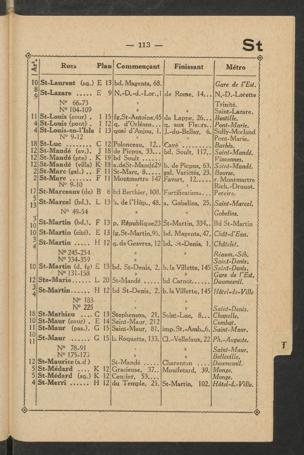 — 113 —
St
Arr. Rues Plan Commençant Finissant Métro
10 St-Laurent (sq.) E 13 bd. Magenta, 68. Gare de l'Est.
St-Lazare ..... E 9 N.-D.-d.-Lor., 1 de Rome, 14... N.-D.-Lorette
Nos 66-73 » » Trinité.
Nos 104-109 » » Saint-Lazare.
11 St-Louis (cour). I 15 fg.St-Antoine, 45 de Lappe, 26... Bastille.
4 St-Louis (pont). I 12 q. d'Orléans.. q. aux Fleurs.. Pont-Marie.
4 St-Louis-en-l'Isle I 13 quai d'Anjou, 1. J.-du-Bellay, 6. Sully-Morland
Nos 9-12 » » Pont-Marie.
18 St-Luc C 12 Polonceau, 12.. Cavé Barbès.
12 St-Mandé (av.) J 18 de Picpus, 33.. bd. Soult, 117. Saint-Mandé.
12 St-Mandé (pte). K 19 bd Soult » Vincennes.
12 St-Mandé (villa) K 19 a.de St-Mandé b. de Picpus, 63 Saint-Mandé.
2 St-Marc (gal.).. F 11 St-Marc, 8.... gal. Variétés, 23 Bourse.
2 St-Marc F 11 Montmartre 149 Favart, 12..... r. Montmartre
Nos 9-10 » » Rich.-Drouot.
17 St-Marceaux (de) B 6 bd Berthier, 108. Fortifications.. Pereire.
St-Marcel (bd.). L 13 b. de l'Hôp., 48. a. Gobelins, 25. Saint-Marcel.
Nos 49-54 » » Gobelins.
St-Martin (bd.), F 13 p. République St-Martin, 334.. Bd St-Martin
10 St-Martin (cité). E 13 fg. St-Martin, 90. bd. Magenta, 47. Chât-d'Eau.
St-Martin ..... H 12 q. de Gesvres, 12 bd. St-Denis, 1. Châtelet.
Nos 245-254 » » Réaum.-Séb.
Nos 334-359 » » Saint-Denis.
10 St-Martin (d. fg) E 13 bd. St-Denis, 2. b. la Villette, 145 Saint-Denis.
Nos 131-158 » » Gare de l'Est.
12 Ste-Marie L 20 St-Mandé bd Carnot Daumesnil.
St-Martin H 12 bd St-Denis, 2. b. la Villette, 145 Hôtel-de-Ville
Nos 183
Nos 225 » » Saint-Denis.
18 St-Mathieu ... C 13 Stephenson, 21. Saint-Luc, 8.. Chapelle.
10 St-Maur (cour). E 14 Saint-Maur, 212 » Combat.
11 St-Maur (pas.). G 15 Saint-Maur, 81. imp.St-Amb., 6 Saint-Maur.
St-Maur ...... G 15 b. Roquette, 133. Cl.-Vellefaux, 22 Ph.-Auguste.
Nos 78-91 » » Saint-Maur.
Nos 175-175 » » Belleville.
12 St-Maurice (a.d.) St-Mandé .... Charenton ... Daumesnil.
5 St-Médard K 12 Gracieuse, 37.. Mouffetard, 39. Monge.
5 St-Médard (sq.) K 12 Censier, 33.... » Monge.
4 St-Merri H 12 du Temple, 23. St-Martin, 102. Hôtel-d.-Ville.